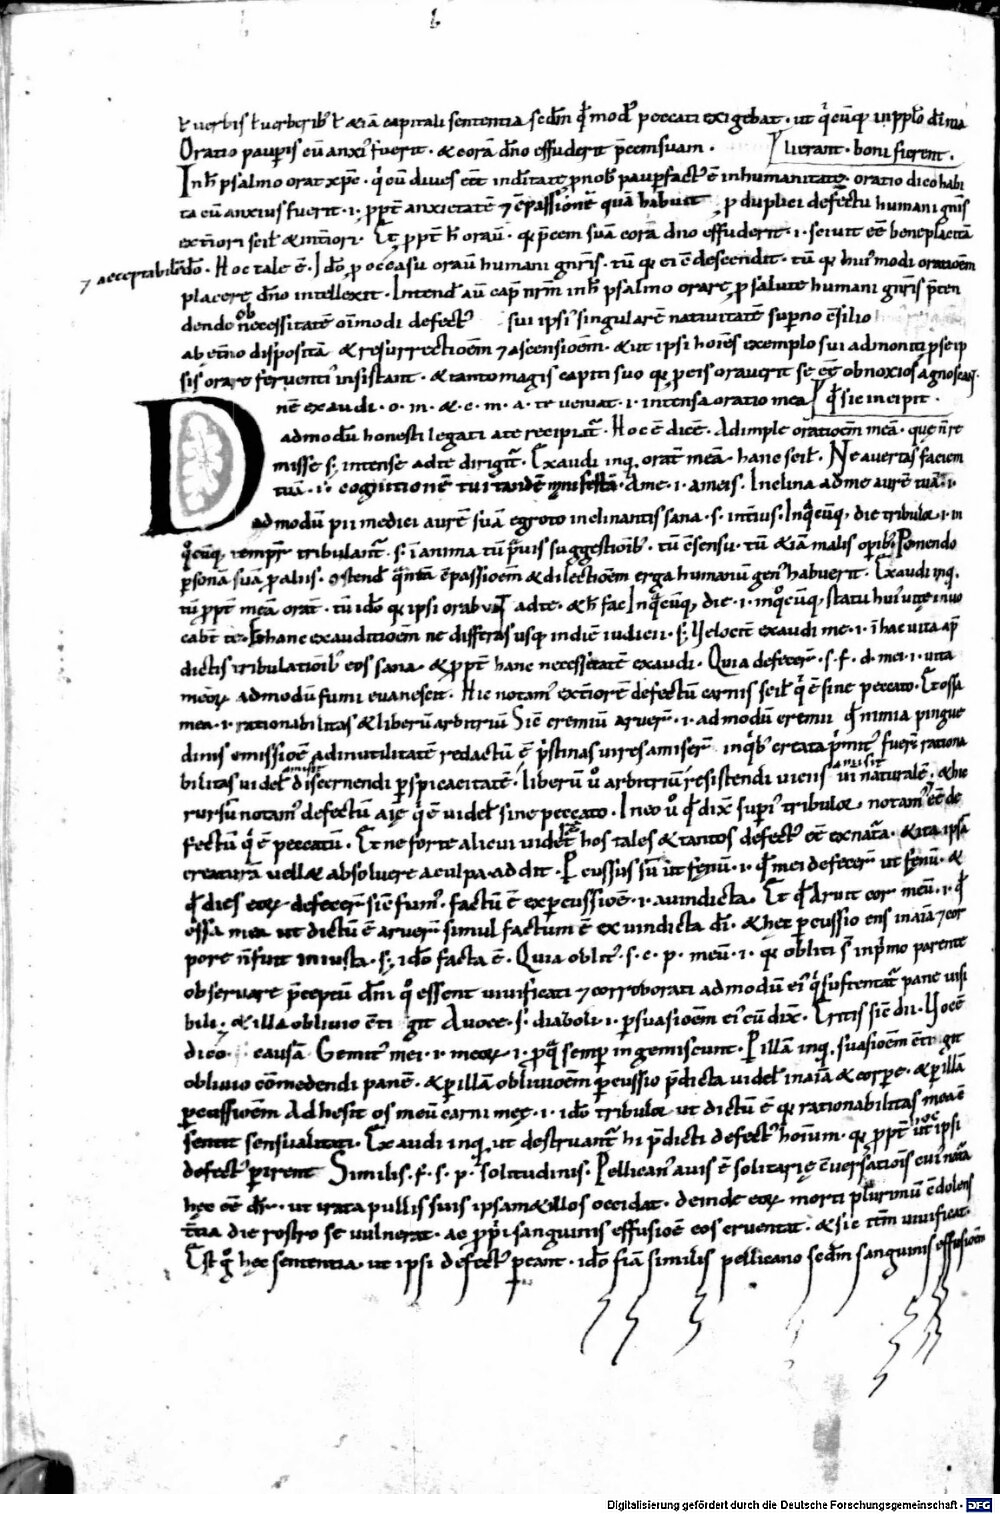 ł uerbis ł uerberib; ł &iā capitali sententia sedm̄ qđ mod; peccati exigebat · ut
Oratio paup̄is cū anxi; fuerit · & corā dn̄o effuderit p̄cem suam · luerant · boni fierent ·
In h̄ psalmo orat xp̄c · q cū diues eēt in diuitate p nob paup fact; ē in humanitate · oratio dico habi
ta cū anxius fuerit · i · ꝓpt anxietatē ⁊ cōpassionē quā habuit ꝓ duplici defectu humani gn̄is
exteriori scil & int̄iori · Et ꝓpt h̄ orau · qꝫ p̄cem suā corā dn̄o effuderit · i · sciuit eē beneplacitā
⁊ acceptabilē dō · Hoc tale ē · Idō ꝓ occasu orau humani gn̄is · tū qꝫ ei ē descendit · tū qꝫ hui;modi orationem
placere dn̄o intellexit · Intend aū cap nr̄m in h̄ psalmo orare ꝓ salute humani gn̄is p̄ten
dendo ob necessitatē oīmodi defect; sui ipsi; singularē natiuitatē superno c̄silio
ab et̄no dispositā & resurrectioēm ⁊ ascensioēm · & ut ipsi hoīes exemplo sui admoniti ꝓ se ip
sis orare feruenti; insistant · & tanto magis capiti suo qꝫ ꝓ eis orauerit se eē obnoxios agnoscāt ·
Dn̄e exaudi · o · m · & c · m · a · te ueniat · i · intensa oratio mea qđ sic incipit ·
admodū honesti legati a te recipiat · Hoc ē dicē · Adimple orationem meā · que n̄ re
misse s; intense ad te dirigit · Exaudi inq orat meā · hanc scil · Ne auertas faciem
tuā · i · cognitionē tui tandē manifestā · a me · i · a meis · Inclina ad me aurē tuā · i ·
admodū pii medici aurē suā egroto inclinantis sana · s · int̄ius · Inqcūq die tribulor · i · in
qcūq tempr tribulant · s · ī anima tū prauis suggestionib; · tū c̄sensu · tū &iā malis opib; · Ponendo
ꝑsonā suā ꝓ aliis · ostend qntā c̄passioēm & dilectioēm erga humanū gen; habuerit · Exaudi inq
tū ꝓpt meā orat · tū idō qꝫ ipsi orab ad te · & h̄ fac Inqcūq die · i · inqcūq statu hui; uite inuo
cabt te · hanc exauditioēm ne differas usq in diē iudicii · s; Uelocit exaudi me · i · ī hac uita a p̄
dictis tribulationib; eos sana · & ꝓpt hanc necessitatē exaudi · Quia defecer · s · f · d · mei · i · uita
meor admodū fumi euanescit · Hic notam; exteriorē defectū carnis scil q ē sine peccato · Et ossa
mea · i · rationabilitas & liberū arbitriū Sic cremiū aruer · i · ad modū cremii qđ nimia pingue
dinis emissioē ad inutilitatē redactū ē pristinas uires amiser in qb; creata primit; fuer rationa
bilitas uidel discernendi ꝑspicacitatē · liberū u arbitriū resistendi uiciis uī naturalē · & hic
rursū notam; defectum aīę q ē uidel sine peccato · In eo u qđ dix superi; tribulor notam; eē de
fectū q ē peccatū · Et ne forte alicui uidet hos tales & tantos defect; eē ex natra · & ita ipsā
creaturā uell& absoluere a culpa · addit · Pcussus sū ut fenū · i · qđ mei defecer ut fenū · &
qđ dies eor defecer sic fum; · factū ē ex ꝑcussioē · i · a uindicta · Et qđ Aruit cor meū · i · qđ
ossa mea ut dictū ē aruer simul factum ē ex uindicta di · & hec ꝑcussio eius in aīa ⁊ cor
pore n̄ fuit iniusta · s; idō facta ē · Quia oblit; · s · c · p · meū · i · qꝫ obliti s in primo parente
obseruare p̄ceptū dn̄i q essent uiuificati ⁊ corroborati admodū ei; q sustentat pane uisi
bili · & illa obliuio c̄tigit A uoce · s · diaboli · i · ꝑsuasioēm ei; cū dix · Eritis sic dii · Hoc ē
dico causā Gemit; mei · i · meor · i · ꝓ q semper ingemiscunt · P illā inq suasioēm c̄tigit
obliuio cōmedendi panē · & ꝑ illā obliuioēm ꝑcussio p̄dicta uidel in aīa & corpe · & ꝑ illā
ꝑcussioēm Adhesit os meū carni meę · i · idō tribulor ut dictū ē qꝫ rationabilitas mea c̄
sentit sensualitati · Exaudi inq ut destruant hi p̄dicti defect; hoium · qꝫ ꝓpt hoc ut ipsi
defect; ꝑirent Similis · f · s · p · solitudinis · Pellican; auis ē solitarię c̄uersatiois cui; natra
hęc eē dr · ut irata pullis suis ipsam & illos occidat · deinde eor morti plurimū c̄dolens
t̄tia die rostro se uulnerat · ac ꝓpri sanguinis effusioē eos cruentat · & sic itm uiuificat ·
Est g hęc sententia · ut ipsi defect; ꝑeant · idō fiā similis pellicano sedm sanguinis effusioēm
Digitalisierung gefördert durch die Deutsche Forschungsgemeinschaft - DFG